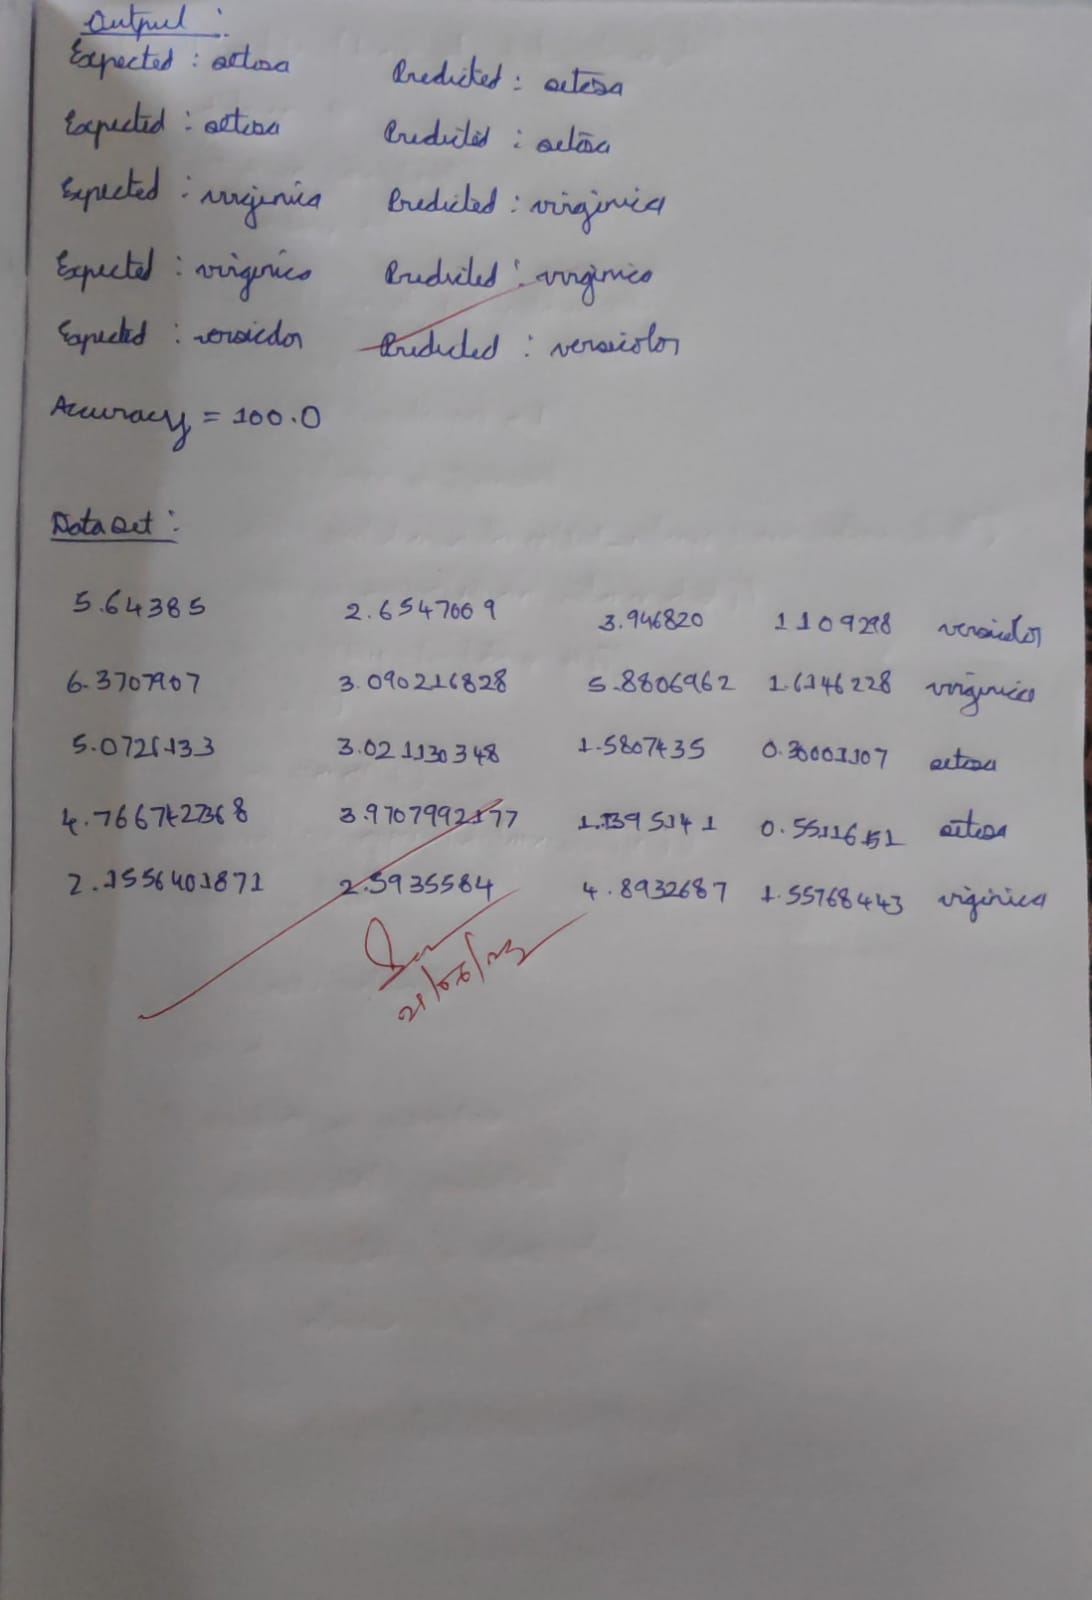 Output :
Expected : setosa Predicted : setosa
Expected : setosa Predicted : setosa
Expected : virginica Predicted : virginica
Expected : virginica Predicted : virginica
Expected : versicolor Predicted : versicolor
Accuracy = 100.0
Dataset :
5.64385 2.6547009 3.946820 1109298 versicolor
6.3707907 3.090216828 5.8806962 1.6146228 virginica
3.021130348 1.5807435 setosa
3.9707992177 setosa
2.1556401871 2.5935584 4.8932687 1.55768443 viginica
21/06/23